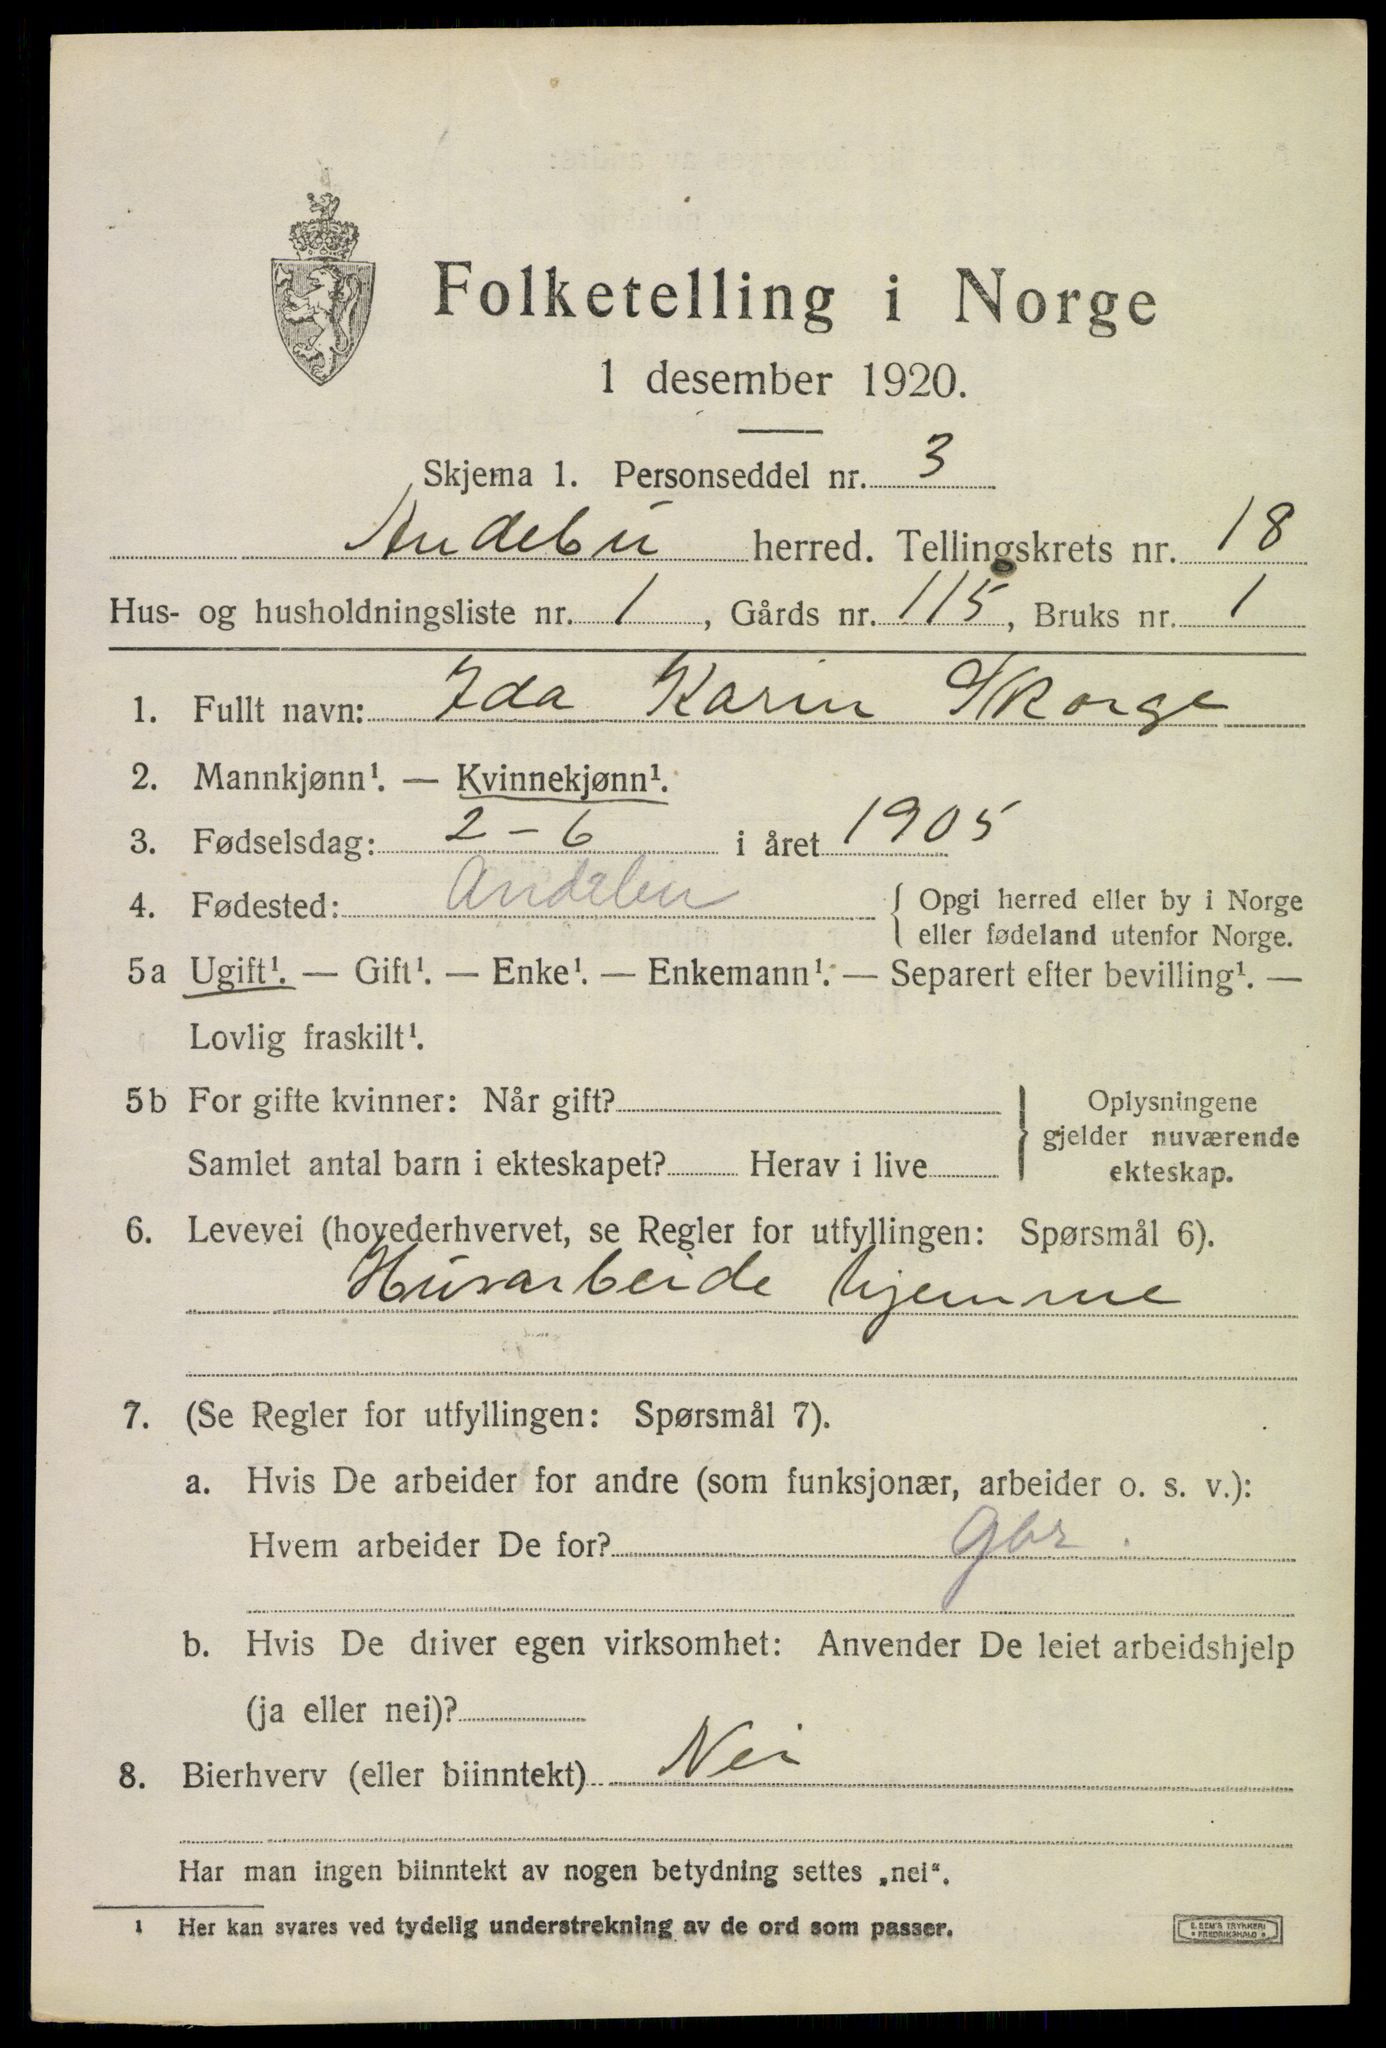 Folketelling i Norge
1 desember 1920.
Skjema 1. Personseddel nr. 3
Andebu herred. Tellingskrets nr. 18
Hus- og husholdningsliste nr. 1, Gårds nr. 115, Bruks nr. 1
1. Fullt navn: Ida Karin Skorge
2. Mannkjønn¹. — Kvinnekjønn¹.
3. Fødselsdag: 2-6 i året 1905
4. Fødested: Andebu { Opgi herred eller by i Norge
eller fødeland utenfor Norge.
5a Ugift¹. — Gift¹. — Enke¹. — Enkemann¹. — Separert efter bevilling¹. —
Lovlig fraskilt¹.
5b For gifte kvinner: Når gift? } Oplysningene
gjelder nuværende
Samlet antal barn i ekteskapet? Herav i live
ekteskap.
6. Levevei (hovederhvervet, se Regler for utfyllingen: Spørsmål 6).
Husarbeide hjemme
7. (Se Regler for utfyllingen: Spørsmål 7).
a. Hvis De arbeider for andre (som funksjonær, arbeider o. s. v.):
Hvem arbeider De for? Gbr.
b. Hvis De driver egen virksomhet: Anvender De leiet arbeidshjelp
(ja eller nei)?
8. Bierhverv (eller biinntekt) Nei
Har man ingen biinntekt av nogen betydning settes „nei“.
¹ Her kan svares ved tydelig understrekning av de ord som passer.
E. SEM'S TRYKKERI
* FREDRIKSHALD *